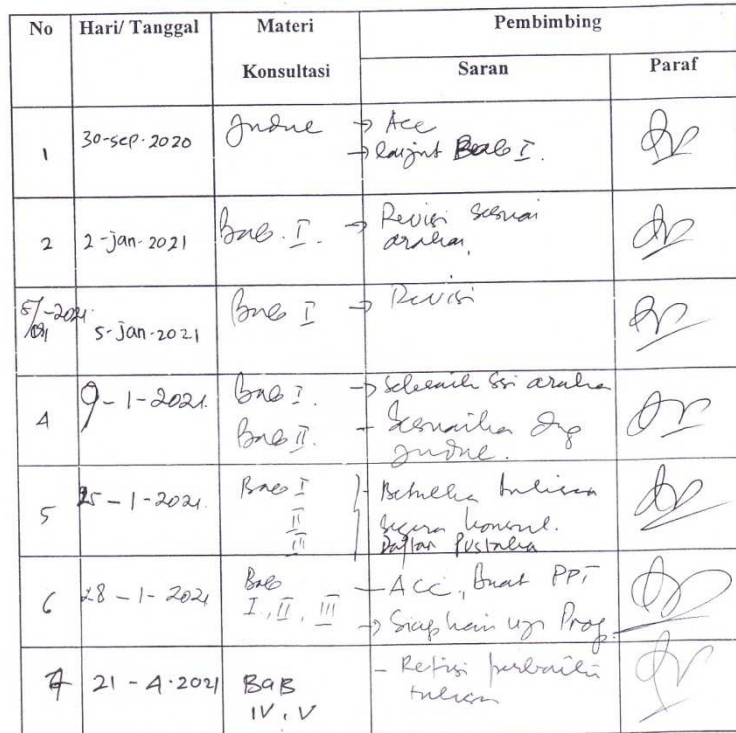 No Hari/ Tanggal Materi Konsultasi Pembimbing
Saran Paraf
1 30-sep-2020 Judul → Acc
→ lanjut Bab I.
2 2-jan-2021 Bab I. → Revisi sesuai
arahan.
5/-2021 5-jan-2021 Bab I → Revisi
4 9-1-2021. Bab I. → sesuai arahan
Bab II. - Sesuaikan dng
judul.
5 25-1-2021. Bab I - Betulkan tulisan
II segera konsul.
III Daftar Pustaka
6 28-1-2021 Bab - ACC, buat PPT
I, II, III → Siapkan uji Prop.
7 21-4-2021 BAB - Revisi perbaiki
IV, V tulisan